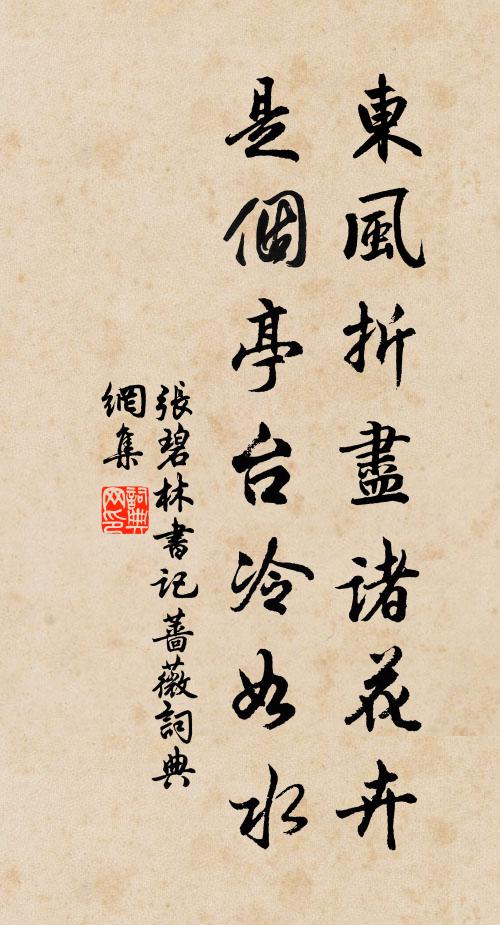 東風折盡諸花卉
是個亭台冷如水
張碧林書記薔薇詞典
網集
詞典
网印